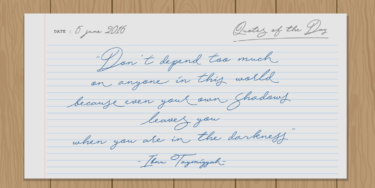 DATE : 8 june 2016
Quotes of the Day
"Don't depend too much
on anyone in this world
because even your own shadows
leaves you
when you are in the darkness"
- Ibnu Taymiyyah -